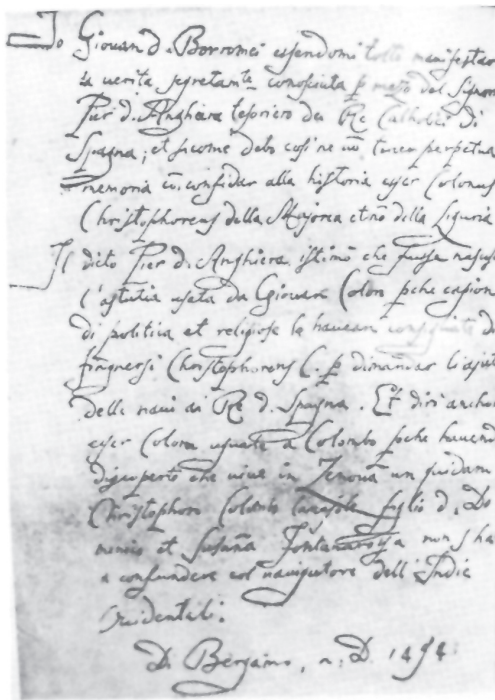 Io Giovan d. Borromei essendomi tolto manifestar
la verita segretamte conosciuta p mezo del Signor
Pier d. Anghiera tesoriero dei Re Catholici di
Spagna, et sicome debo cosi ne un tereo perpetua
memoria confidar alla historia esser Colonus
Christophorens della Majorca et nō della Liguria
Il dicto Pier d. Anghiera istimò che fusse nascos
l'astutia usata da Giovan Colon pche casione
di politica et religiose la haveano consigliato de
fingnersi Christophorens C. p dimandar li ajuti
delli navi ai Re d. Spagna. Et diri anchor
esser Colom equate a Colombo poche havend
discoperto che vive in Zenova un quidam
Christophoro Colombo Canajole figlio d. Do
menico et Susaña Fontanarossa non s ha
a confundere col navigatore dell Indie
Occidentali.
Di Bergamo, n. D. 1494